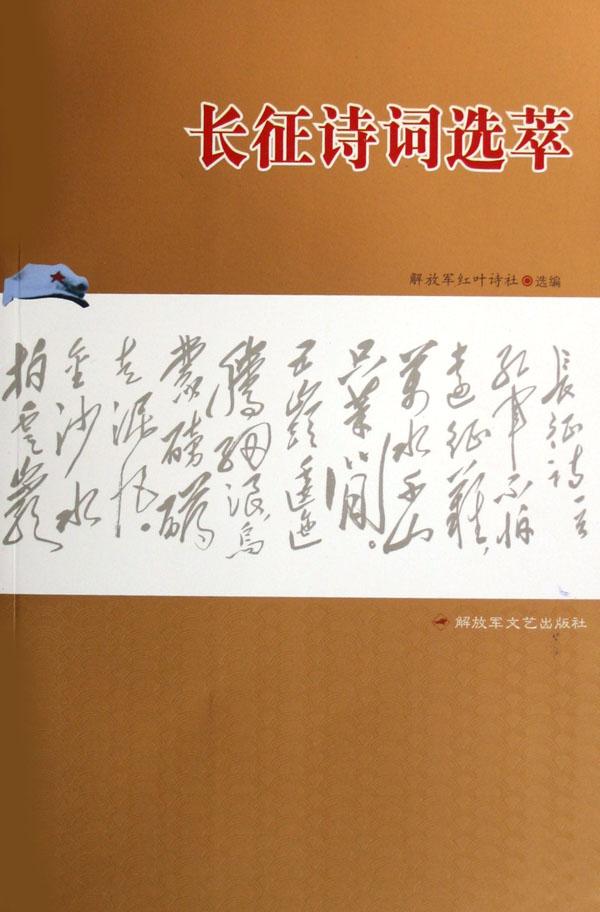 长征诗词选萃
解放军红叶诗社 选编
長征詩一首
紅軍不怕
遠征難，
萬水千山
只等閒。
五嶺逶迤
騰細浪，烏
蒙磅礴
走泥丸。
金沙水
拍雲崖
解放军文艺出版社